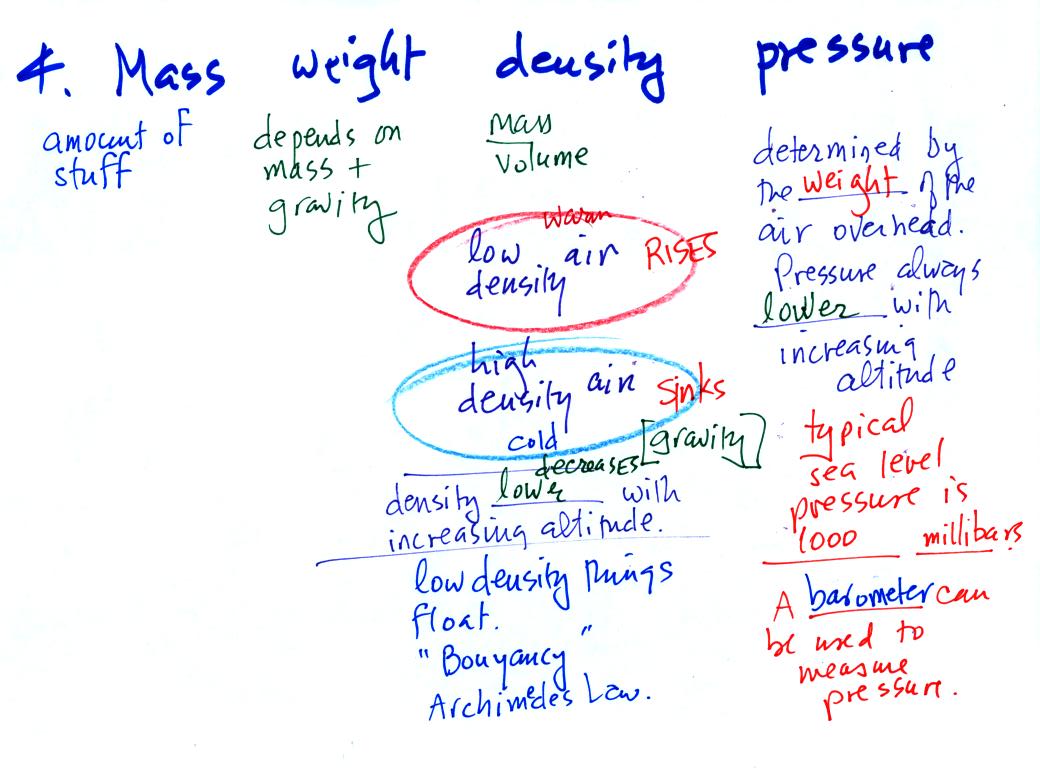 4. Mass weight density pressure
amount of
stuff
depends on
mass +
gravity
mass
volume
warm
low air RISES
density
high
density air sinks
cold
[gravity]
decreases
density lower with
increasing altitude.
low density things
float.
"Bouyancy"
Archimedes Law.
determined by
the weight of the
air overhead.
Pressure always
lower with
increasing
altitude
typical
sea level
pressure is
1000 millibars
A barometer can
be used to
measure
pressure.